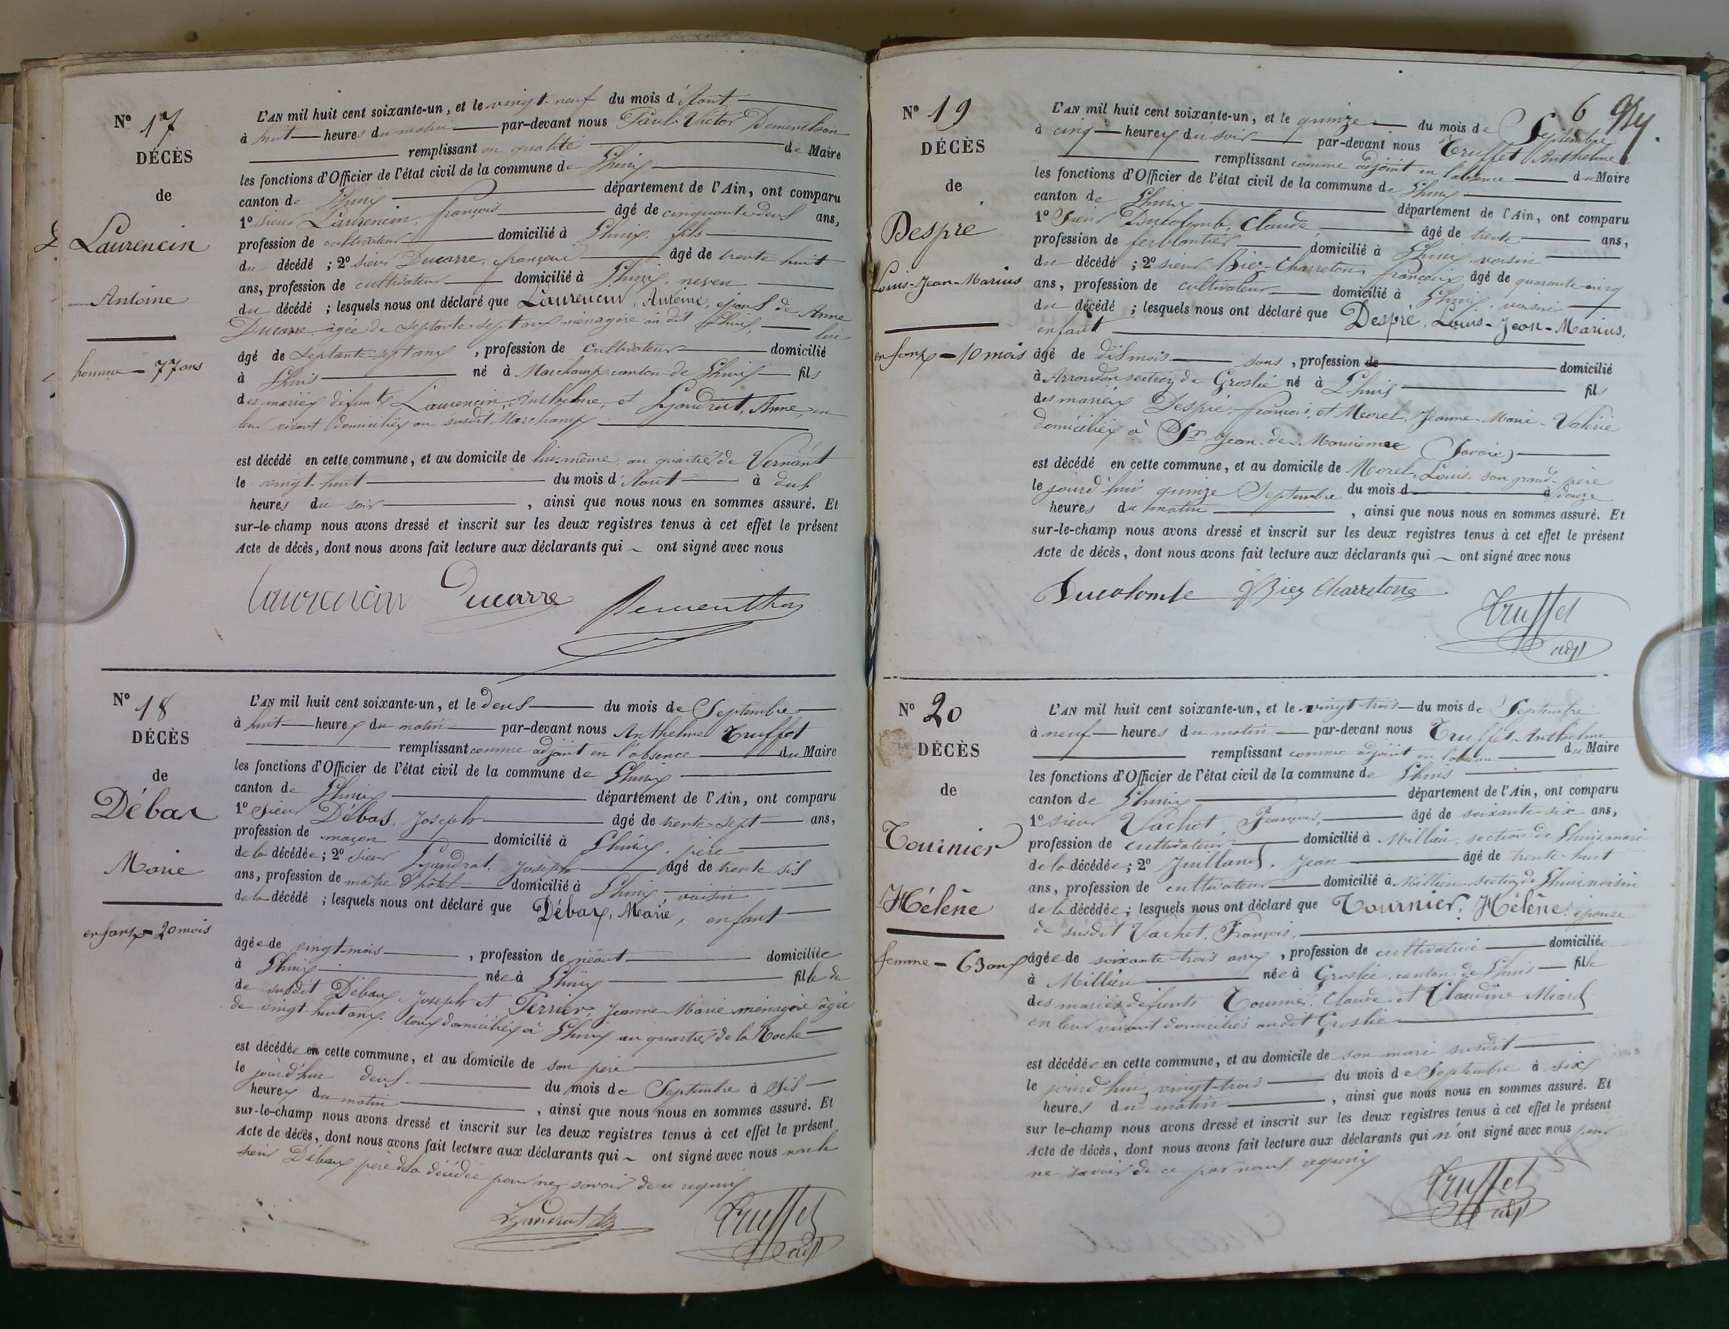 N° 17
DÉCÈS
de
Laurencin
Antoine
homme - 77 ans
L'AN mil huit cent soixante-un, et le vingt-neuf du mois d'Août
à huit heures du matin par-devant nous Paul Victor Dementhon
remplissant en qualité de Maire
les fonctions d'Officier de l'état civil de la commune de Lhuis
canton de Lhuis département de l'Ain, ont comparu
1° sieur Laurencin, françois âgé de cinquante deux ans,
profession de cultivateur domicilié à Lhuis, fils
du décédé ; 2° sieur Ducarre, françois âgé de trente huit
ans, profession de cultivateur domicilié à Lhuis, neveu
du décédé ; lesquels nous ont déclaré que Laurencin, Antoine, époux de Anne
Ducarre, âgée de septante sept ans ménagère au dit Lhuis lui
âgé de septante-sept ans, profession de cultivateur domicilié
à Lhuis né à Marchamp canton de Lhuis fils
des mariés défunts Laurencin, Anthelme, et Gandrat, Anne, en
leur vivant domiciliés au susdit Marchamp
est décédé en cette commune, et au domicile de lui-même au quartier de Vernant
le vingt-huit du mois d'Août à deux
heures du soir, ainsi que nous nous en sommes assuré. Et
sur-le-champ nous avons dressé et inscrit sur les deux registres tenus à cet effet le présent
Acte de décès, dont nous avons fait lecture aux déclarants qui ~ ont signé avec nous
Laurencin Ducarre Dementhon
N° 18
DÉCÈS
de
Débax
Marie
enfant - 20 mois
L'AN mil huit cent soixante-un, et le deux du mois de Septembre
à huit heures du matin par-devant nous Anthelme Truffet
remplissant comme adjoint en l'absence du Maire
les fonctions d'Officier de l'état civil de la commune de Lhuis
canton de Lhuis département de l'Ain, ont comparu
1° Sieur Débax, Joseph âgé de trente-sept ans,
profession de maçon domicilié à Lhuis, père
de la décédée ; 2° sieur Gandrat, Joseph âgé de trente six
ans, profession de maître d'hôtel domicilié à Lhuis voisin
de la décédé ; lesquels nous ont déclaré que Débax, Marie, enfant
âgée de vingt-mois, profession de néant domiciliée
à Lhuis née à Lhuis fille de
de susdit Débax Joseph et Perrier, Jeanne Marie ménagère âgée
de vingt-huit ans, tous domiciliés à Lhuis au quartier de la Roche
est décédée en cette commune, et au domicile de son père
le jourd'hui deux du mois de Septembre à six
heures du matin, ainsi que nous nous en sommes assuré. Et
sur-le-champ nous avons dressé et inscrit sur les deux registres tenus à cet effet le présent
Acte de décès, dont nous avons fait lecture aux déclarants qui ~ ont signé avec nous non le
sieur Débax père de la décédée pour ne savoir de ce requis
Gandrat Truffet adjt
6
N° 19
DÉCÈS
de
Despré
Louis-Jean-Marius
enfant - 10 mois
L'AN mil huit cent soixante-un, et le quinze du mois de Septembre
à cinq heures du soir par-devant nous Truffet Anthelme
remplissant comme adjoint en l'absence du Maire
les fonctions d'Officier de l'état civil de la commune de Lhuis
canton de Lhuis département de l'Ain, ont comparu
1° Sieur Ducolomb, Claude, âgé de trente ans,
profession de ferblantier domicilié à Lhuis, voisin
du décédé ; 2° sieur Biez-Charreton, françois âgé de quarante-cinq
ans, profession de cultivateur domicilié à Lhuis, voisin
du décédé ; lesquels nous ont déclaré que Despré, Louis-Jean-Marius,
enfant
âgé de dix mois sans, profession de domicilié
à section de Groslée né à Lhuis fils
des mariés Despré, françois, et Morel, Jeanne-Marie-Valérie
domiciliés à St Jean de Maurienne (Savoie)
est décédé en cette commune, et au domicile de Morel, Louis, son grand-père
le jourd'hui quinze Septembre du mois d à douze
heures du matin, ainsi que nous nous en sommes assuré. Et
sur-le-champ nous avons dressé et inscrit sur les deux registres tenus à cet effet le présent
Acte de décès, dont nous avons fait lecture aux déclarants qui ~ ont signé avec nous
Ducolombe Biez Charreton Truffet adjt
N° 20
DÉCÈS
de
Tournier
Hélène
femme - 63 ans
L'AN mil huit cent soixante-un, et le vingt-trois du mois de Septembre
à neuf heures du matin par-devant nous Truffet Anthelme
remplissant comme adjoint en l'absence du Maire
les fonctions d'Officier de l'état civil de la commune de Lhuis
canton de Lhuis département de l'Ain, ont comparu
1° sieur Vachot, François âgé de soixante-six ans,
profession de cultivateur domicilié à Millieu, section de Lhuis mari
de la décédée ; 2° Juilland, Jean âgé de trente-huit
ans, profession de cultivateur domicilié à Millieu section de Lhuis voisin
de la décédée ; lesquels nous ont déclaré que Tournier, Hélène, épouse
de susdit Vachot, François,
âgée de soixante trois ans, profession de cultivatrice domiciliée
à Millieu née à Groslée, canton de Lhuis fille
des mariés défunts Tournier, Claude et Claudine Miard
en leur vivant domiciliés au dit Groslée
est décédée en cette commune, et au domicile de son mari susdit
le jourd'hui vingt-trois du mois de Septembre à six
heures du matin, ainsi que nous nous en sommes assuré. Et
sur-le-champ nous avons dressé et inscrit sur les deux registres tenus à cet effet le présent
Acte de décès, dont nous avons fait lecture aux déclarants qui n'ont signé avec nous pour
ne savoir de ce par nous requis
Truffet adjt